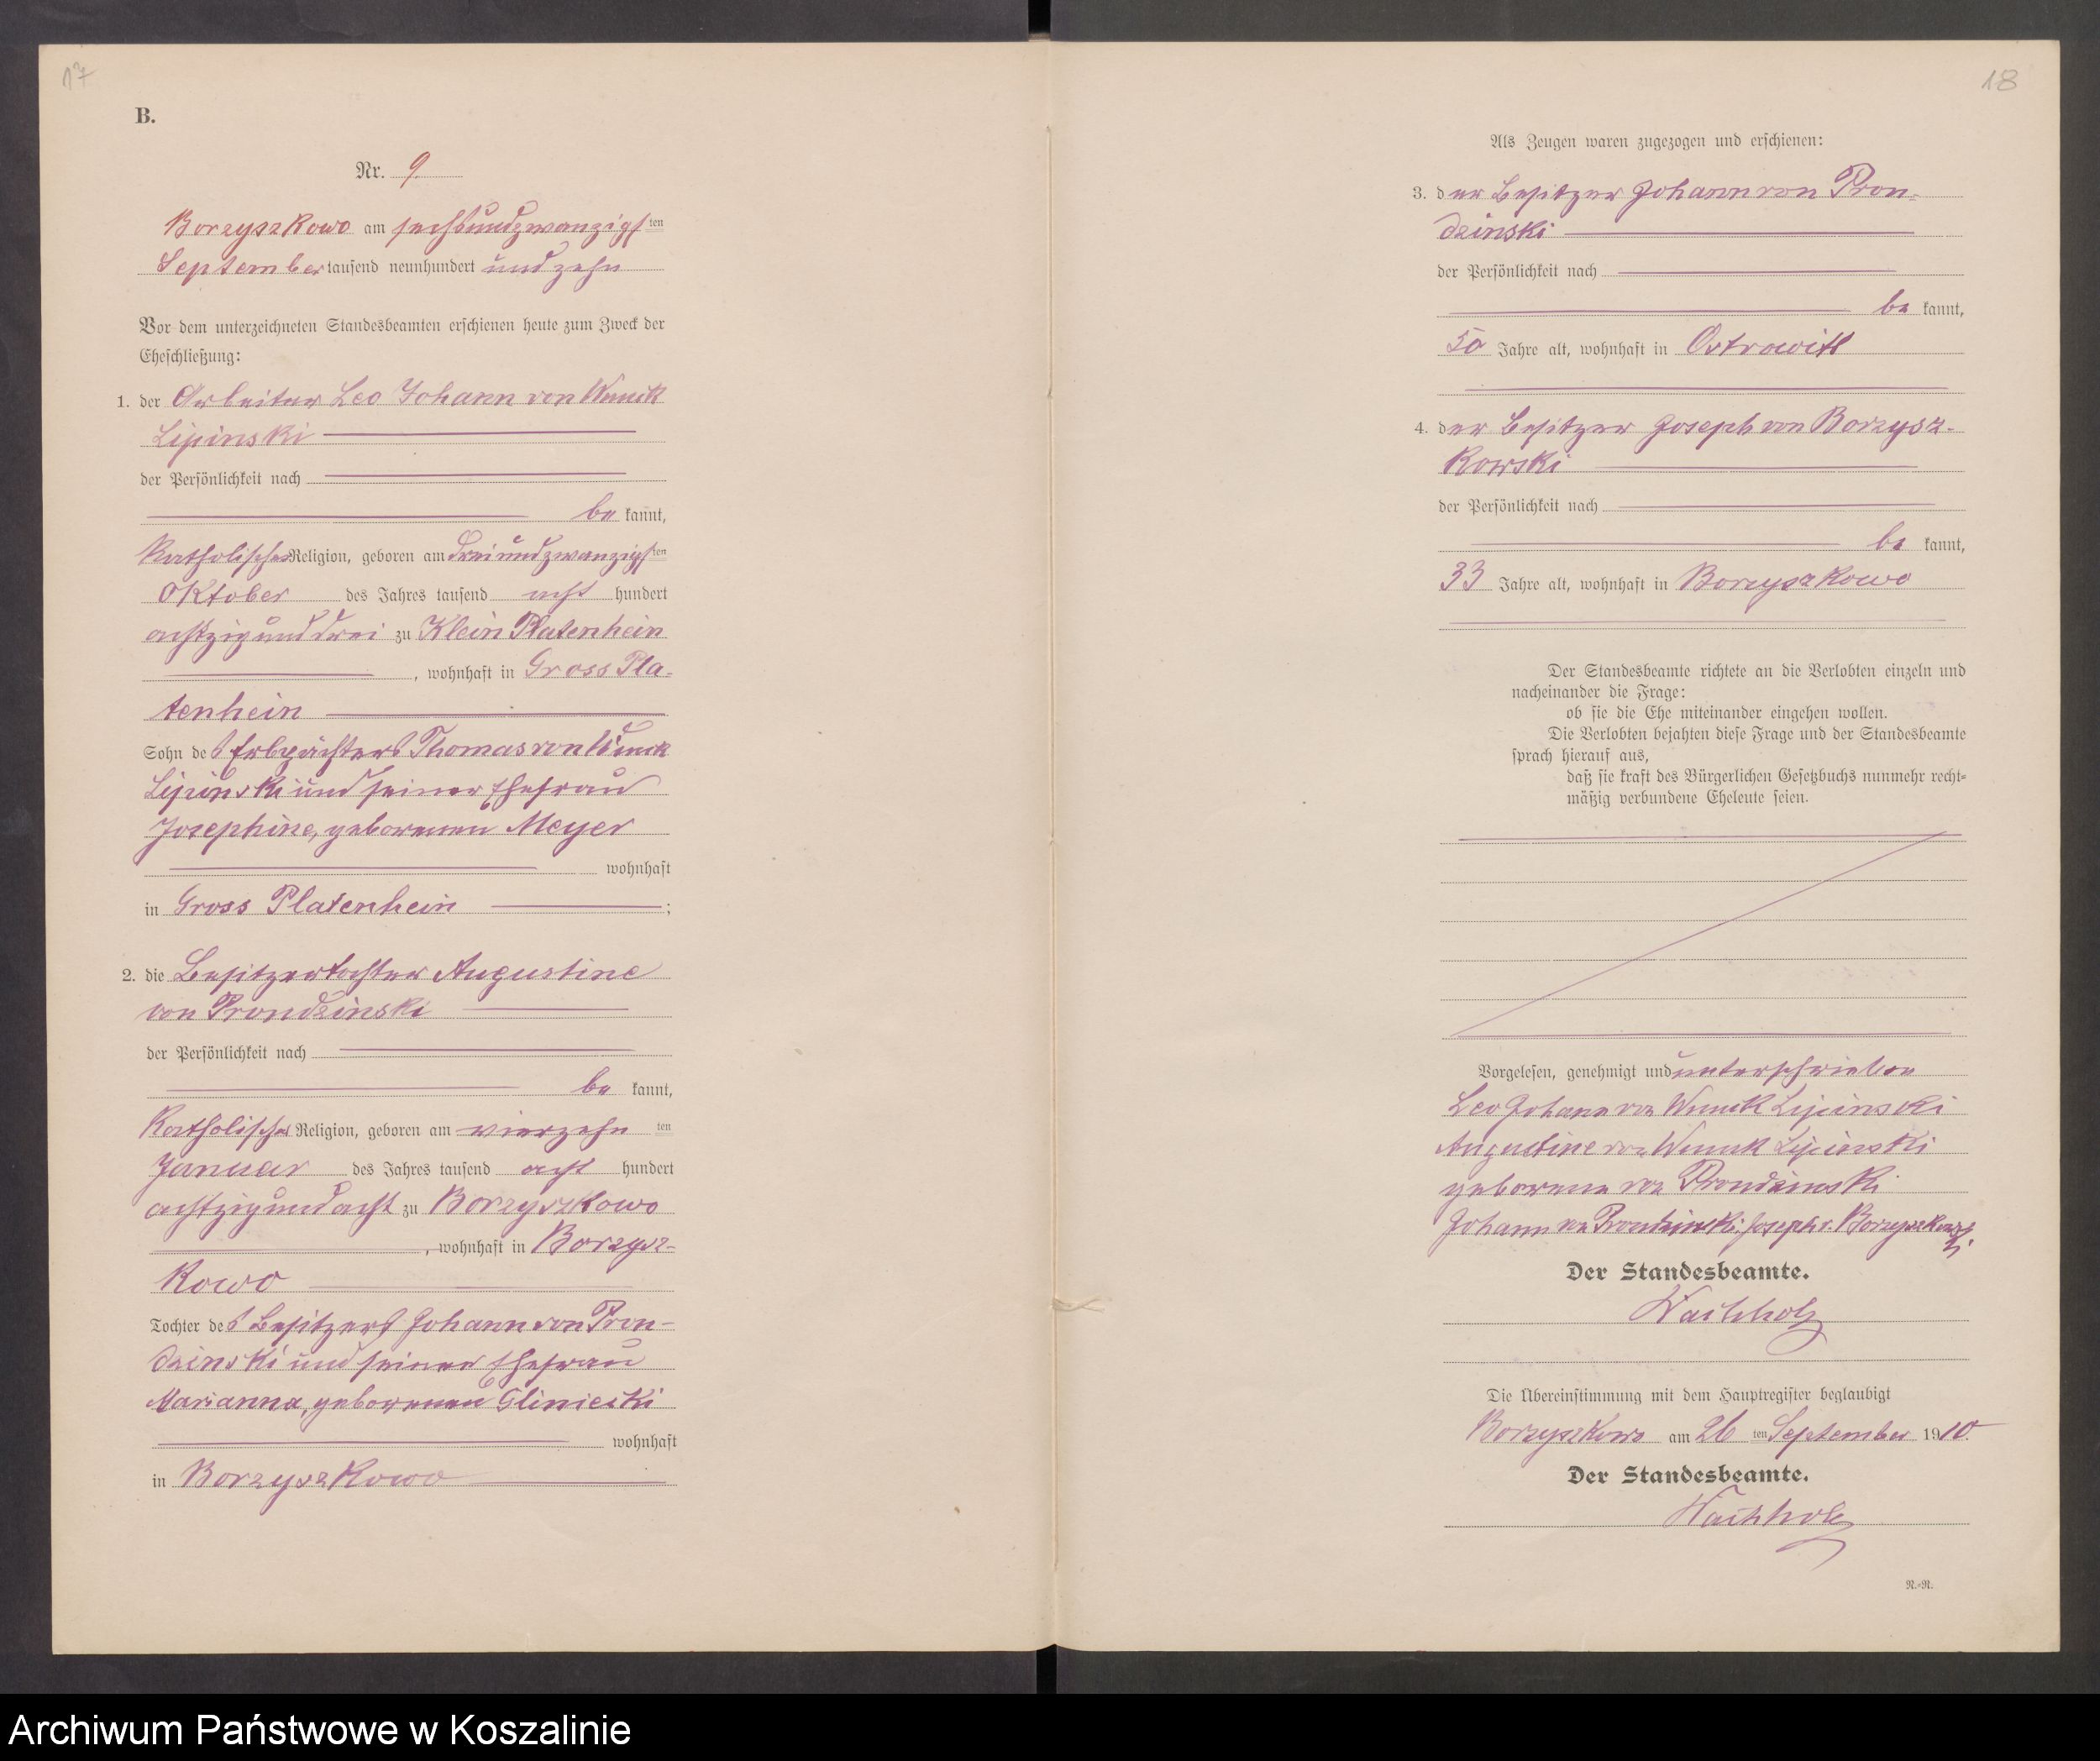 17
B.
Nr. 9.
Borzyszkowo am sechsundzwanzigsten
September tausend neunhundert und zehn
Vor dem unterzeichneten Standesbeamten erschienen heute zum Zweck der
Eheschließung:
1. der Arbeiter Leo Johann von Wnuck
Lipinski
der Persönlichkeit nach
be kannt,
Katholischer Religion, geboren am dreiundzwanzigsten
Oktober des Jahres tausend acht hundert
achtzig und drei zu Klein Platenhein
, wohnhaft in Gross Pla-
tenhein
Sohn des Erbpächters Thomas von Wnuck
Lipinski und seiner Ehefrau
Josephine, geborenen Meyer
wohnhaft
in Gross Platenhein ;
2. die Besitzertochter Augustine
von Prondzinski
der Persönlichkeit nach
be kannt,
Katholischer Religion, geboren am vierzehn ten
Januar des Jahres tausend acht hundert
achtzig und acht zu Borzyszkowo
, wohnhaft in Borzysz-
kowo
Tochter des Besitzers Johann von Pron-
dzinski und seiner Ehefrau
Marianna, geborenen Gliniecki
wohnhaft
in Borzyszkowo
18
Als Zeugen waren zugezogen und erschienen:
3. der Besitzer Johann von Pron-
dzinski
der Persönlichkeit nach
be kannt,
50 Jahre alt, wohnhaft in Ostrowitt
4. der Besitzer Joseph von Borzysz-
kowski
der Persönlichkeit nach
be kannt,
33 Jahre alt, wohnhaft in Borzyszkowo
Der Standesbeamte richtete an die Verlobten einzeln und
nacheinander die Frage:
ob sie die Ehe miteinander eingehen wollen.
Die Verlobten bejahten diese Frage und der Standesbeamte
sprach hierauf aus,
daß sie kraft des Bürgerlichen Gesetzbuchs nunmehr recht-
mäßig verbundene Eheleute seien.
Vorgelesen, genehmigt und unterschrieben
Leo Johann von Wnuck Lipinski
Augustine von Wnuck Lipinski
geborene von Prondzinski
Johann von Prondzinski. Joseph v. Borzyszkowski.
Der Standesbeamte.
Wachholz
Die Übereinstimmung mit dem Hauptregister beglaubigt
Borzyszkowo am 26 ten September 1910.
Der Standesbeamte.
Wachholz
N.-N.
Archiwum Państwowe w Koszalinie